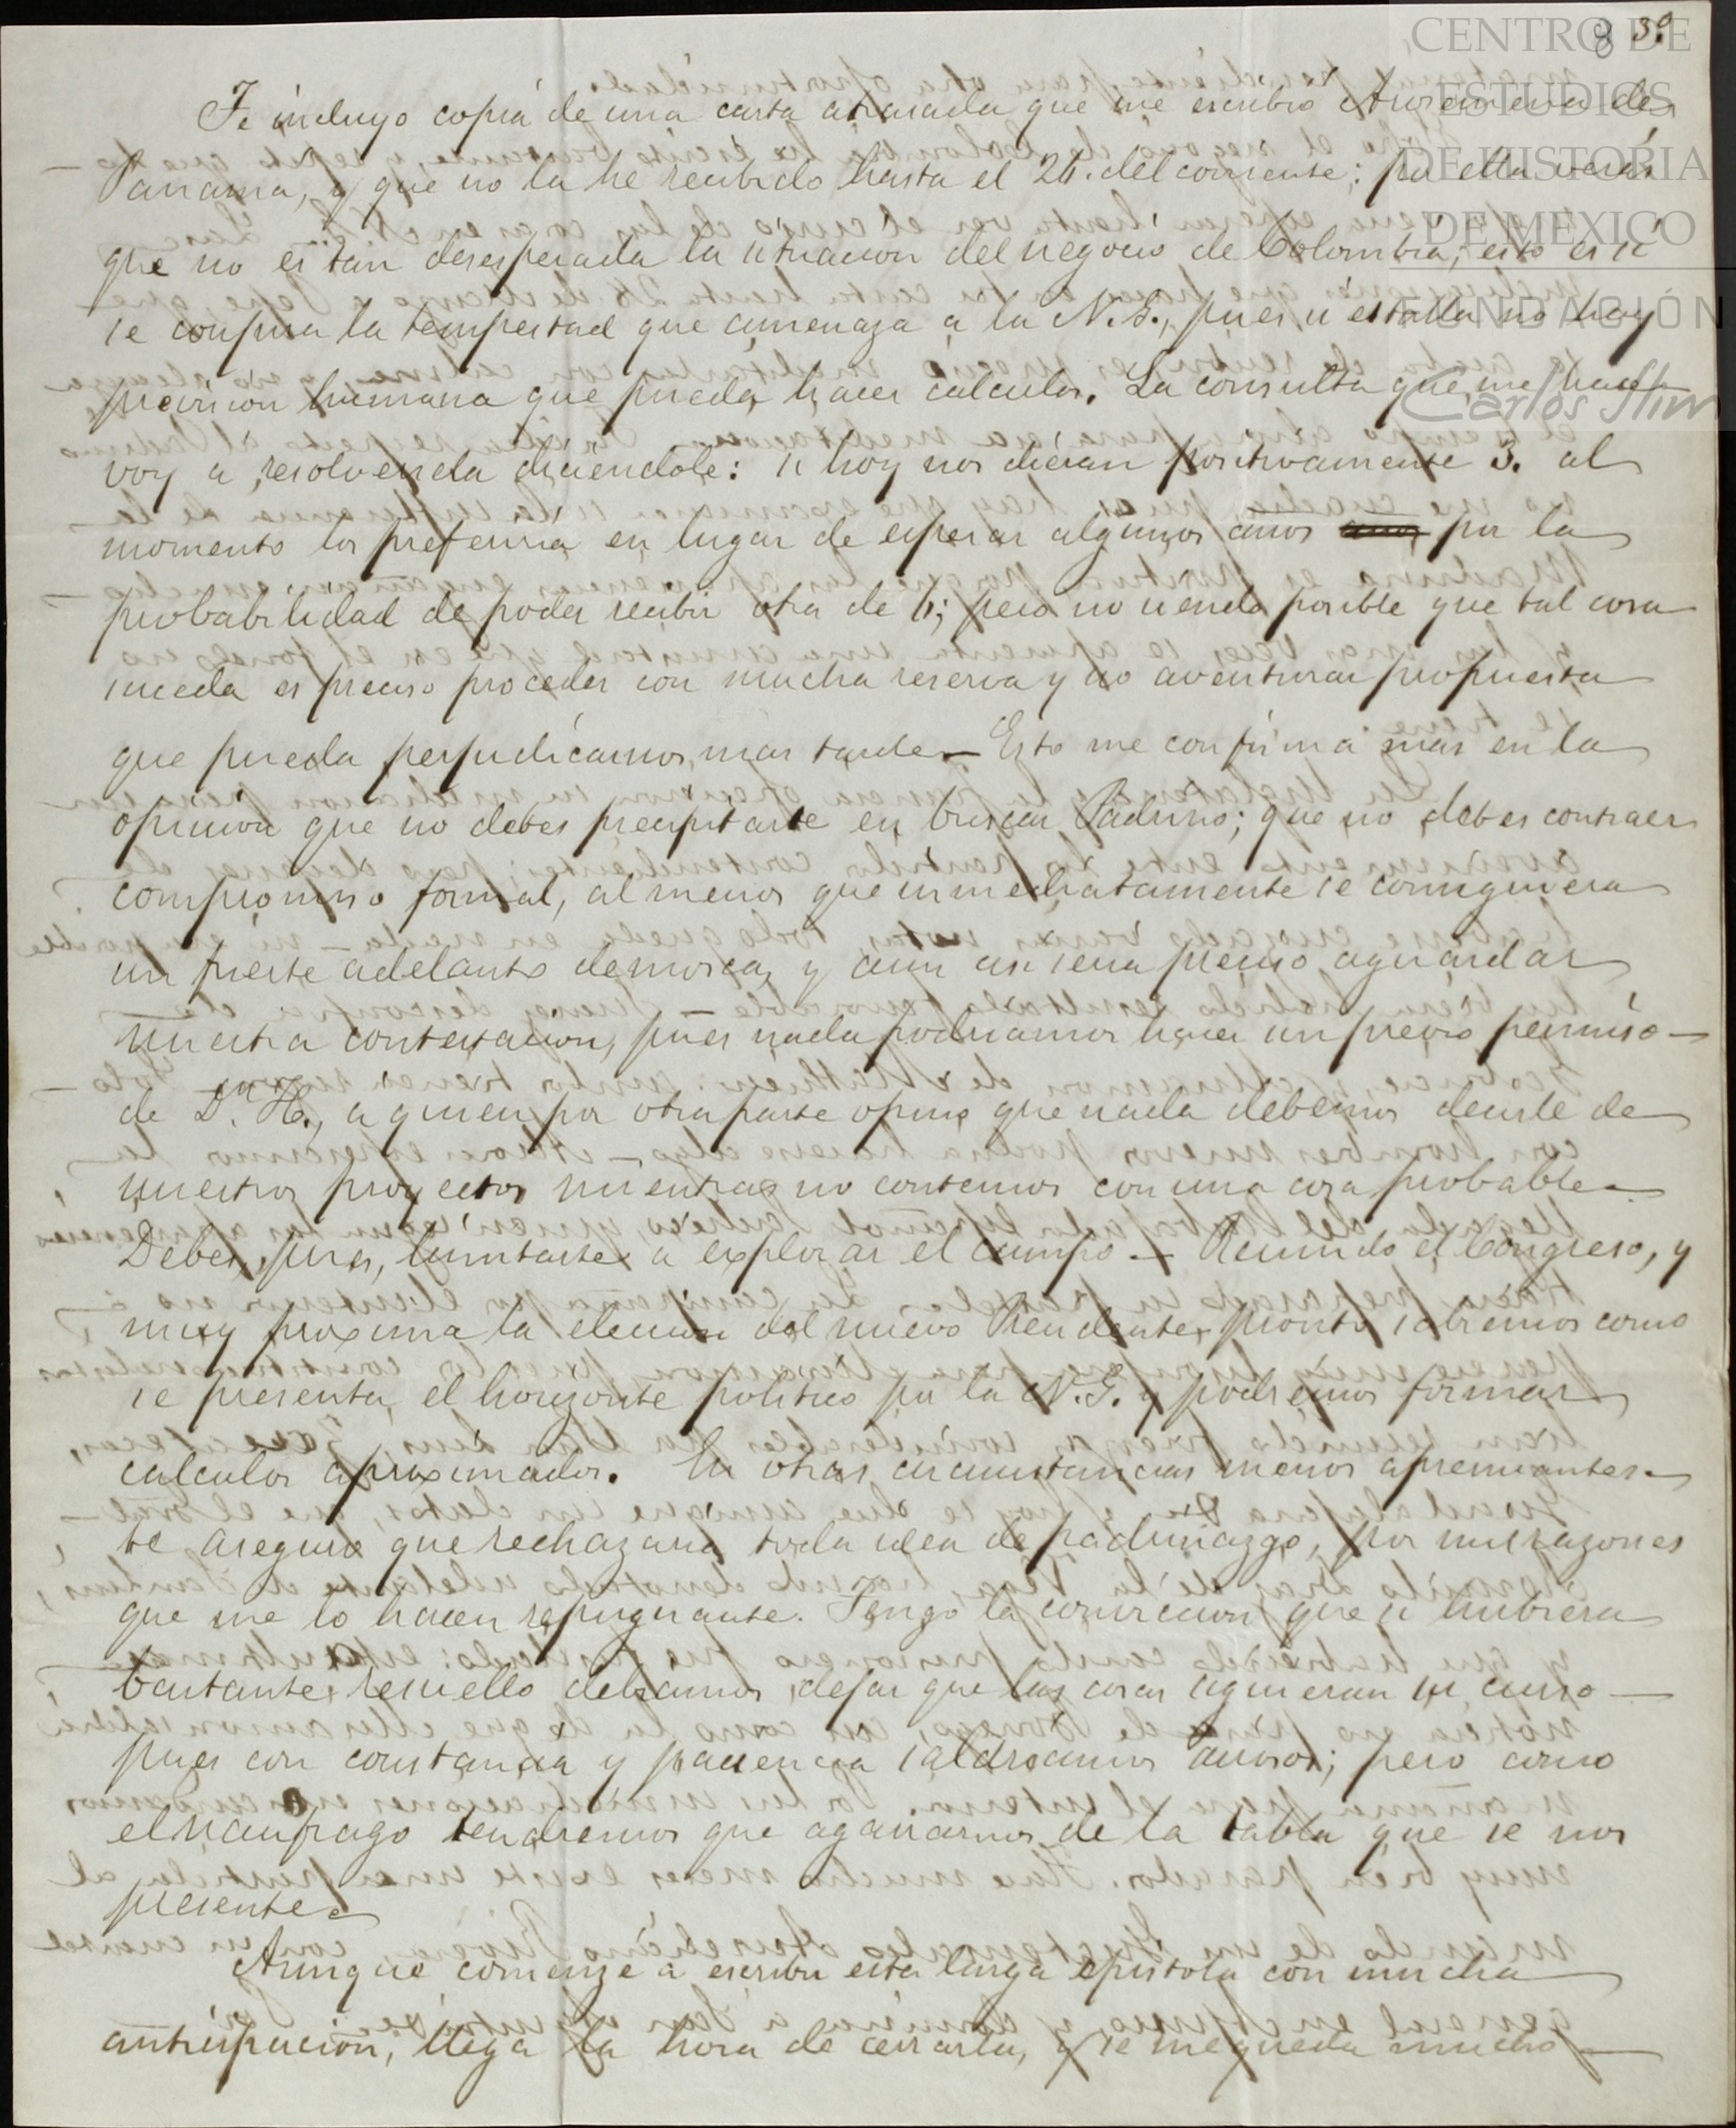 8 3º
CENTRO DE
ESTUDIOS
DE HISTORIA
DE MEXICO
FUNDACIÓN
Carlos Slim
Te incluyo copia de una carta atrasada que me escribió Aurem de
Panama, y que no la he recibido hasta el 24. del corriente; por ella verás
que no es tan desesperada la situacion del negocio de Colombia; esto es si
se conjura la tempestad que amenaza a la N. G., pues si estalla no hay
prevision humana que pueda hacer calculos. La consulta que me hace
voy a resolversela diciendole: si hoy nos dieran positivamente 3. al
momento los preferiria en lugar de esperar algunos años por la
probabilidad de poder recibir otra de 6; pero no siendo posible que tal cosa
suceda es preciso proceder con mucha reserva y no aventurar propuesta
que pueda perjudicarnos mas tarde — Esto me confirma mas en la
opinion que no debes precipitarte en buscar Padrino; que no debes contraer
compromiso formal, al menos que inmediatamente se consiguiera
un fuerte adelanto de mosca, y aun asi seria preciso aguardar
nuestra contestacion, pues nada podriamos hacer sin previo permiso —
de Dn. H., a quien por otra parte opino que nada debemos decirle de
nuestros proyectos mientras no contemos con una cosa probable —
Debes, pues, limitarte a explorar el campo — Reunido el Congreso, y
muy proxima la eleccion del nuevo Presidente, pronto sabremos como
se presenta el horizonte politico por la N. G. y podremos formar
calculos aproximados. En otras circunstancias menos apremiantes —
te aseguro que rechazaria toda idea de padrinazgo, por mil razones
que me lo hacen repugnante. Tengo la conviccion que si hubiera
bastante resuello debiamos dejar que las cosas siguieran su curso —
pues con constancia y paciencia saldriamos airosos; pero como
el naufrago tendremos que agarrarnos de la tabla que se nos
presente —
Aunque comenze a escribir esta larga epistola con mucha
anticipacion, llega la hora de cerrarla, y se me queda mucho —